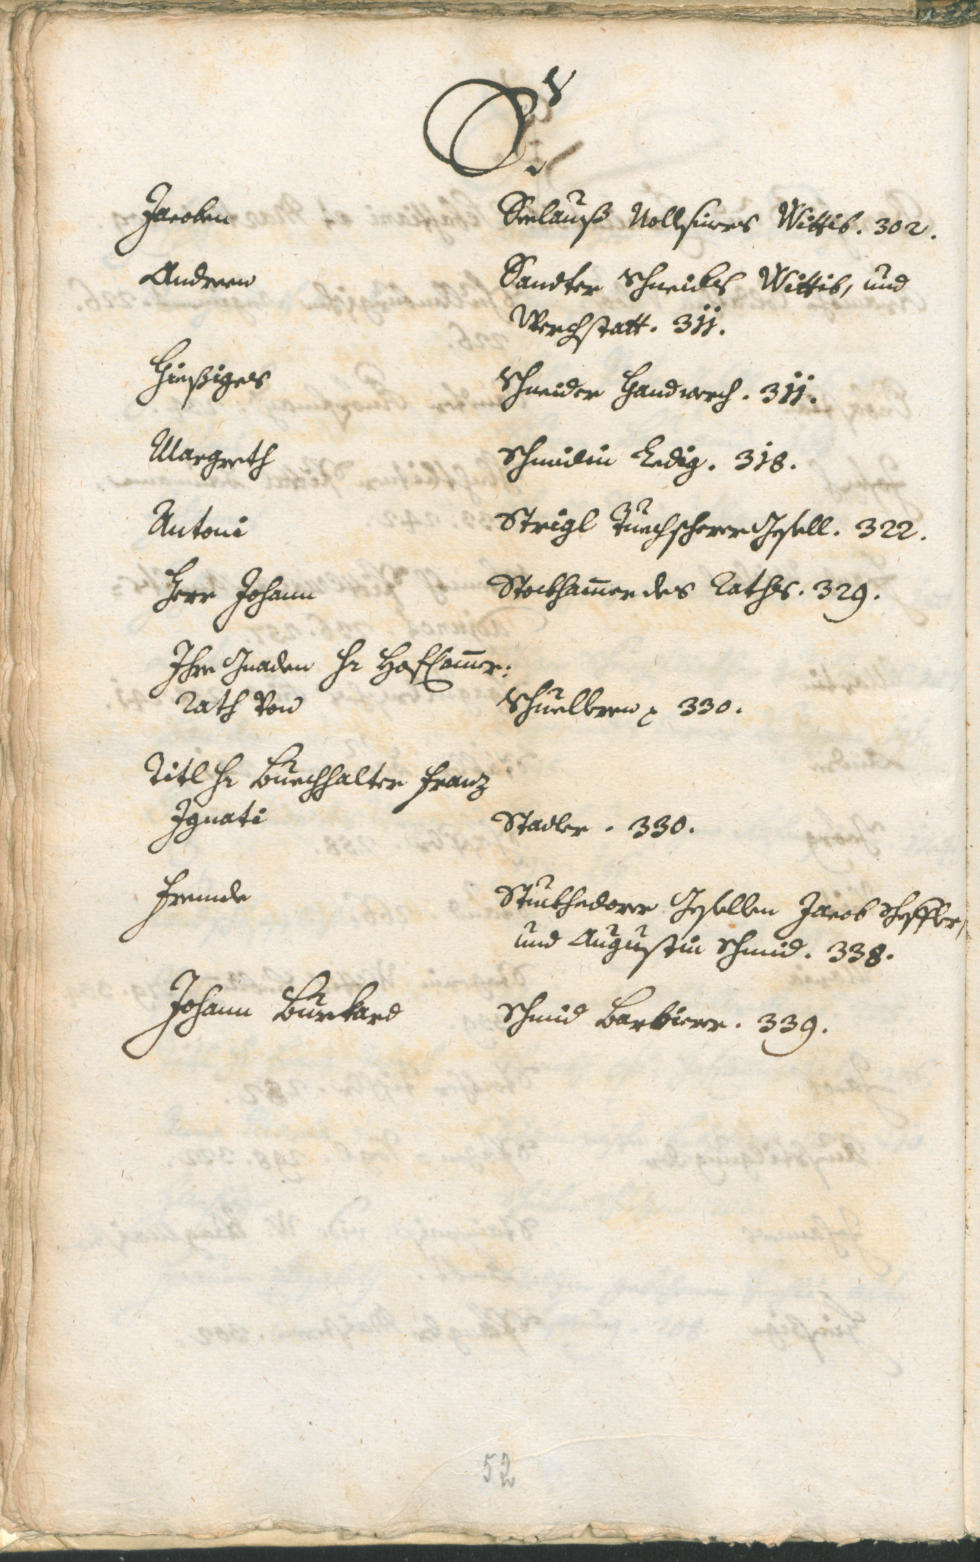 S.
Jacoben Seelauß Vollführers Wittib. 302.
Andreen Sandter Schneiders Wittib, und
Werchstatt. 311.
Hießiges Schneider Handwerch. 311.
Margreth Schmidin Ledig. 318.
Antoni Strigl Tuechscherer Gsell. 322.
Herr Johann Stockham̄er des Raths. 329.
Ihre Gnaden Hr Hofkam̄er:
Rath Von 330.
Titl Hr Buechhalter Franz
Ignati Stadler. 330.
Fremde Gesellen Jacob Scheffler,
und Augustin Schmid. 338.
Johann Burkard Schmid Barbierer. 339.
52